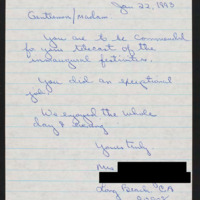 Jan 22, 1993
Gentlemen/Madam
You are to be commended
for your telecast of the
inaugural festivities.
You did an exceptional
job.
We enjoyed the whole
day & evening
Yours truly
Mrs
Long Beach, CA